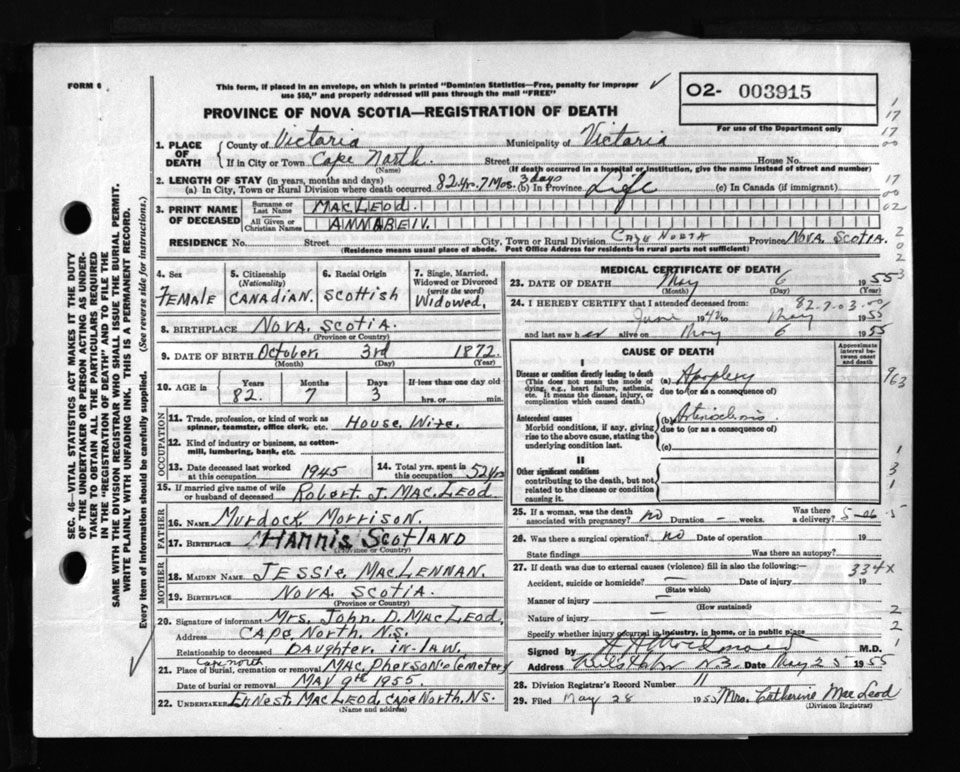 FORM 6
This form, if placed in an envelope, on which is printed "Dominion Statistics—Free, penalty for improper
use $50," and properly addressed will pass through the mail "FREE"
02- 003915
For use of the Department only
PROVINCE OF NOVA SCOTIA—REGISTRATION OF DEATH
1. PLACE OF DEATH
County of Victoria Municipality of Victoria
If in City or Town Cape North. Street House No.
(Name) (If death occurred in a hospital or institution, give the name instead of street and number)
2. LENGTH OF STAY (in years, months and days)
(a) In City, Town or Rural Division where death occurred 82 yrs. 7 Mos. 3 days (b) In Province Life (c) In Canada (if immigrant)
3. PRINT NAME OF DECEASED
Surname or Last Name MacLeod.
All Given or Christian Names
RESIDENCE No. Street City, Town or Rural Division Cape North Province Nova Scotia.
(Residence means usual place of abode. Post Office Address for residents in rural parts not sufficient)
4. Sex Female
5. Citizenship (Nationality) Canadian.
6. Racial Origin Scottish
7. Single, Married, Widowed or Divorced (write the word) Widowed.
8. BIRTHPLACE Nova. Scotia.
(Province or Country)
9. DATE OF BIRTH October. 3rd 1872.
(Month) (Day) (Year)
10. AGE in Years 82. Months 7 Days 3 If less than one day old hrs. or min.
OCCUPATION
11. Trade, profession, or kind of work as spinner, teamster, office clerk, etc. House. Wife.
12. Kind of industry or business, as cotton-mill, lumbering, bank, etc.
13. Date deceased last worked at this occupation 1945
14. Total yrs. spent in this occupation 52 yrs
15. If married give name of wife or husband of deceased Robert. J. MacLeod.
FATHER
16. NAME Murdock Morrison.
17. BIRTHPLACE Harris Scotland
(Province or Country)
MOTHER
18. MAIDEN NAME Jessie MacLennan.
19. BIRTHPLACE Nova. Scotia.
(Province or Country)
20. Signature of informant Mrs. John. D. MacLeod.
Address Cape. North. N.S.
Relationship to deceased Daughter. in-law.
Cape North
21. Place of burial, cremation or removal MacPherson-Cemetery
Date of burial or removal May 9th 1955.
22. UNDERTAKER Ernest MacLeod, Cape North, N.S.
(Name and address)
MEDICAL CERTIFICATE OF DEATH
23. DATE OF DEATH May 6 1955
(Month) (Day) (Year)
24. I HEREBY CERTIFY that I attended deceased from:
82-7-03-00
June 19 to May 1955
and last saw her alive on May 6 1955
CAUSE OF DEATH
Approximate interval between onset and death
I
Disease or condition directly leading to death
(This does not mean the mode of dying, e.g., heart failure, asthenia, etc. It means the disease, injury, or complication which caused death.)
(a) Apoplexy
due to (or as a consequence of)
Antecedent causes
Morbid conditions, if any, giving rise to the above cause, stating the underlying condition last.
(b)
due to (or as a consequence of)
(c)
II
Other significant conditions
contributing to the death, but not related to the disease or condition causing it.
25. If a woman, was the death associated with pregnancy? no Duration – weeks. Was there a delivery?
26. Was there a surgical operation? no Date of operation 19
State findings Was there an autopsy?
27. If death was due to external causes (violence) fill in also the following:— 334x
Accident, suicide or homicide? — Date of injury 19
(State which)
Manner of injury —
(How sustained)
Nature of injury —
Specify whether injury occurred in industry, in home, or in public place
Signed by M.D.
Address Date May 25 1955
28. Division Registrar's Record Number 11
29. Filed May 28 1955 Mrs. Catherine MacLeod
(Division Registrar)
SEC. 46—VITAL STATISTICS ACT MAKES IT THE DUTY
OF THE UNDERTAKER OR PERSON ACTING AS UNDER-
TAKER TO OBTAIN ALL THE PARTICULARS REQUIRED
IN THE "REGISTRATION OF DEATH" AND TO FILE THE
SAME WITH THE DIVISION REGISTRAR WHO SHALL ISSUE THE BURIAL PERMIT.
WRITE PLAINLY WITH UNFADING INK. THIS IS A PERMANENT RECORD.
Every item of information should be carefully supplied. (See reverse side for instructions.)